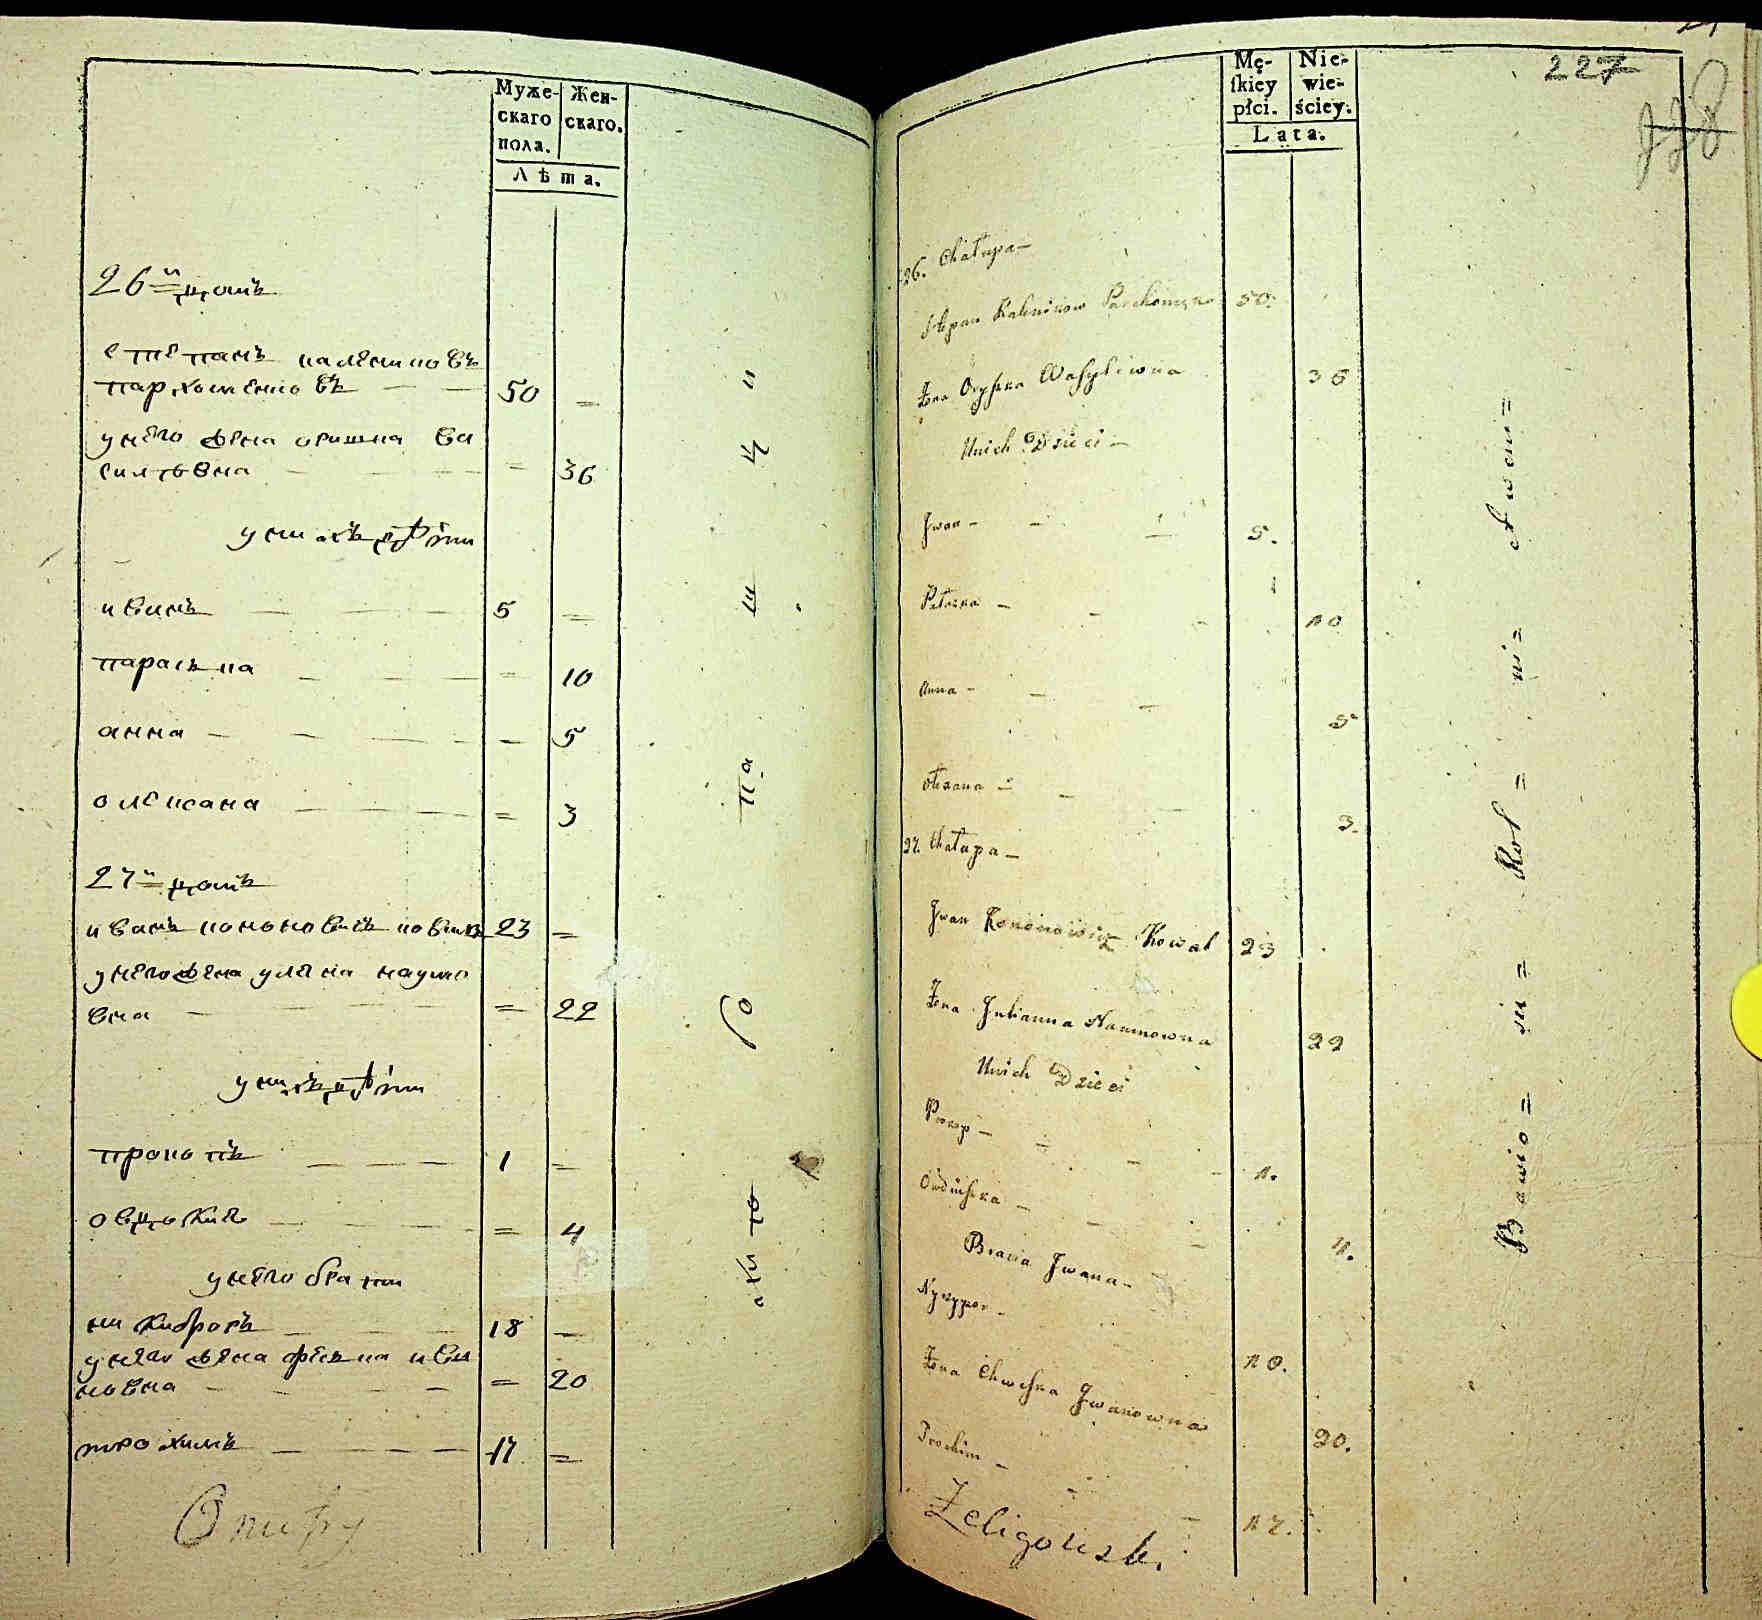 Муже-
скаго
пола.
Жен-
скаго.
Лѣта.
26й домъ
степанъ калениковъ
пархоменковъ 50 =
унего жена оришка ва
сильевна = 36
унихъ дѣти
иванъ 5 =
параська = 10
анна = 5
олексана = 3
27й домъ
иванъ кононовичъ коваль 23 =
унего жена уляна наумо
вна = 22
унихъ дѣти
прокопъ 1 =
овдокия = 4
унего брати
никифоръ 18 =
унего жена феська ива
новна = 20
трохимъ 17 =
Mę-
ſkiey
płci.
Nie-
wie-
ściey.
Lata.
227
26. Chałupa
Stepan Kalenikow Parchomenko 50.
Żona Oryszka Wasyliwna 36
Unich Dzieci
Jwan 5.
Paraska 10
Anna 5
Olexana 3.
27. Chałupa
Jwan Kononowicz Kowal 23
Żona Julianna Naumowna 22
Unich Dzieci
Prokop 1.
Owdiuszka 4.
Bracia Jwana
Nykyfor 18.
Żona Chweska Jwanowna 20.
Trochim 17.
Żeligowski